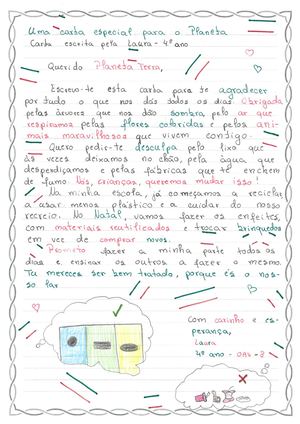 Uma carta especial para o Planeta
Carta escrita pela Laura - 4º ano
Querido Planeta Terra,
Escrevo-te esta carta para te agradecer
por tudo o que nos dás todos os dias. Obrigada
pelas árvores que nos dão sombra, pelo ar que
respiramos, pelas flores coloridas e pelos ani-
mais maravilhosos que vivem contigo.
Quero pedir-te desculpa pelo lixo que
às vezes deixamos no chão, pela água que
desperdiçamos e pelas fábricas que te enchem
de fumo. Nós, crianças, queremos mudar isso!
Na minha escola, já começamos a reciclar,
a usar menos plástico e a cuidar do nosso
recreio. No Natal, vamos fazer os enfeites,
com materiais reutilizados e trocar brinquedos
em vez de comprar novos.
Prometo fazer a minha parte todos os
dias e ensinar os outros a fazer o mesmo.
Tu mereces ser bem tratado, porque és o nos-
so lar
Com carinho e es-
perança,
Laura
4º ano -